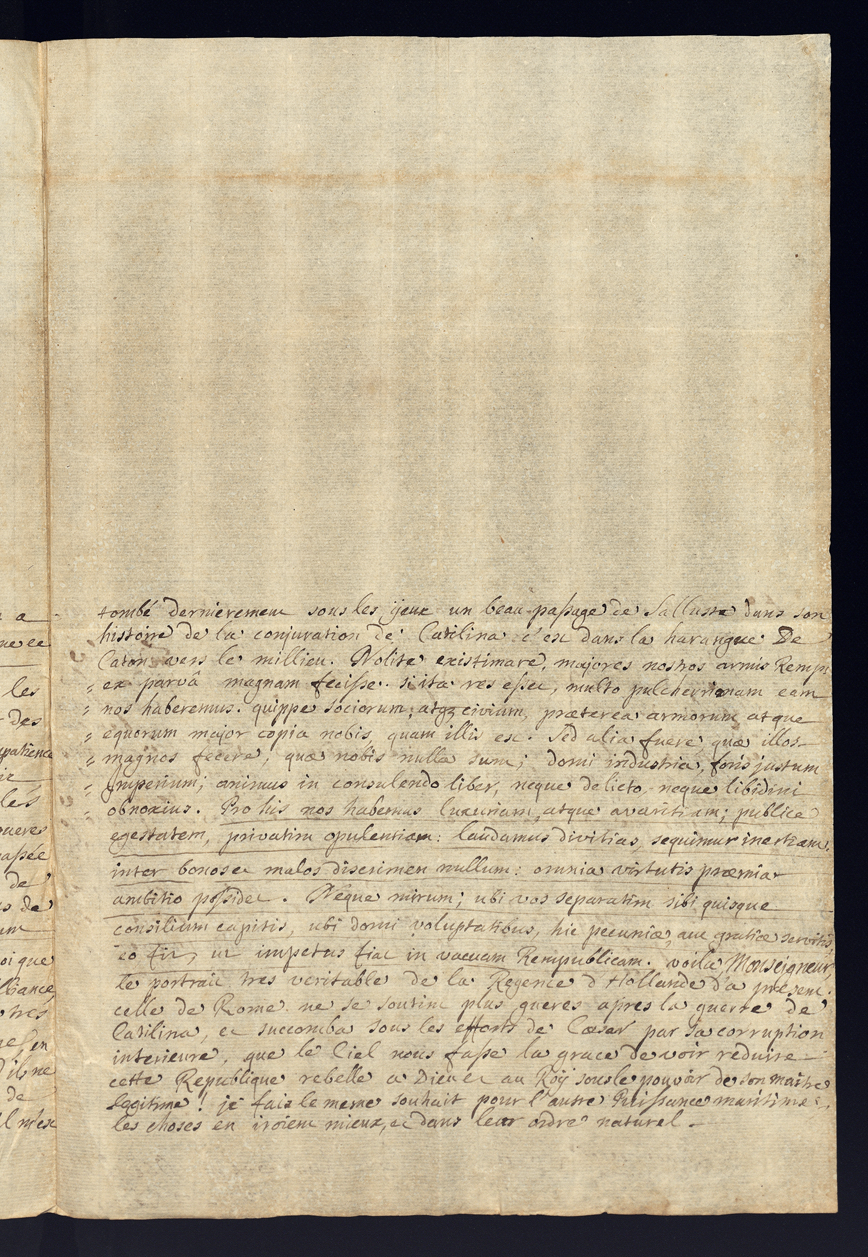 a
les
des
patience
de
um
oi que
lliance
tres
en
d'ils ne
de
il m'est
tombé dernierement sous les ÿeux un beau passage de Salluste dans son
histoire de la conjuration de Catilina c'est dans la harangue De
Caton vers le millieu. Nolite existimare, majores nostros armis Remp:
„ ex parvâ magnam fecisse. si ita res esset, multo pulcherrimam eam
„ nos haberemus. quippe sociorum, atqz civium, præterea armorum atque
„ equorum major copia nobis, quam illis est. Sed alia fuere quæ illos
„ magnos fecere, quæ nobis nulla sunt; domi industria, foris justum
„ Imperium; animus in consulendo liber, neque delicto neque libidini
„ obnoxius. Pro his nos habemus luxuriam, atque avaritiam; publice
egestatem, privatim opulentiam: laudamus divitias, sequimur inertiam.
inter bonos et malos discrimen nullum: omnia virtutis præmia
ambitio possidet. Neque mirum; ubi vos separatim sibi quisque
consilium capitis, ubi domi voluptatibus, hic pecuniæ, aut gratiæ servitis
eo fit, ut impetus fiat in vacuam Rempublicam. voila, Monseigneur
le portrait tres veritable de la Regence d'Hollande d'a présent.
celle de Rome ne se soutint plus gueres apres la guerre de
Catilina, et succomba sous les efforts de Cæsar par sa corruption
interieure. que le Ciel nous fasse la grace de voir reduire
cette Republique rebelle a Dieu et au Roÿ sous le pouvoir de son maitre
legitime! je fais le meme souhait pour l'autre Puissance maritime:
les choses en iroient mieux, et dans leur ordre naturel.